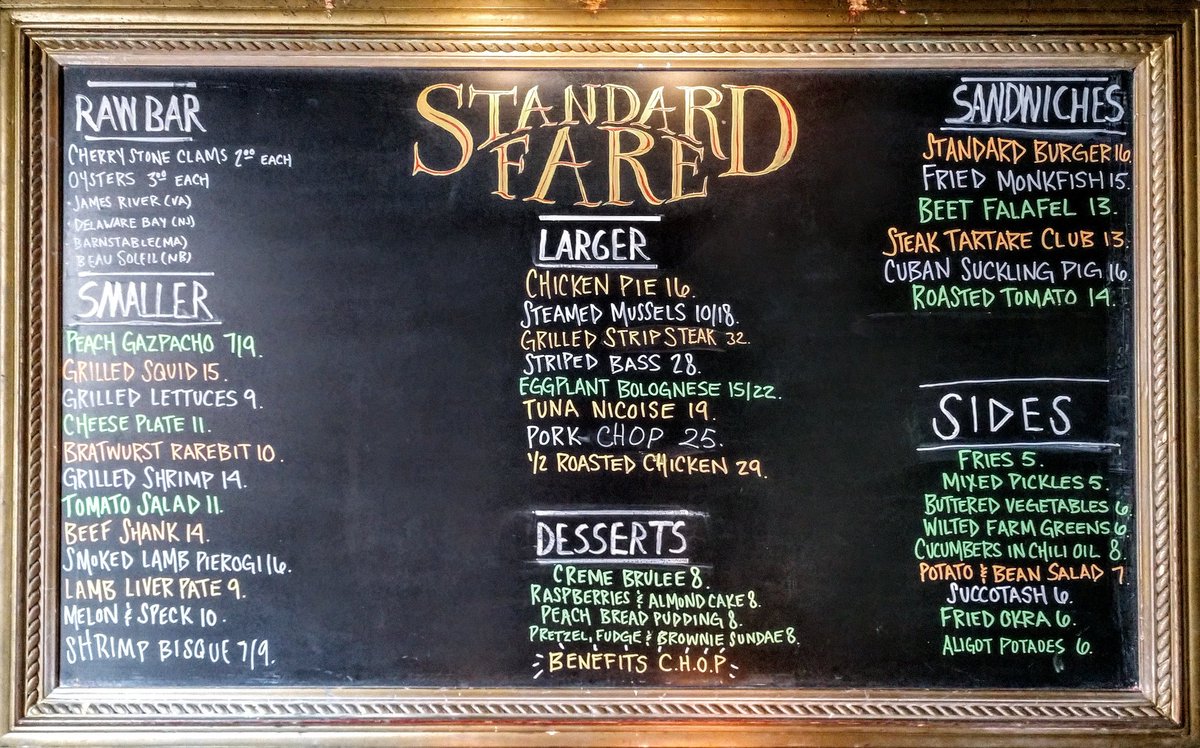 STANDARD
FARE
RAW BAR
CHERRYSTONE CLAMS 2⁰⁰ EACH
OYSTERS 3⁰⁰ EACH
· JAMES RIVER (VA)
· DELAWARE BAY (NJ)
· BARNSTABLE (MA)
· BEAU SOLEIL (NB)
SMALLER
PEACH GAZPACHO 7/9.
GRILLED SQUID 15.
GRILLED LETTUCES 9.
CHEESE PLATE 11.
BRATWURST RAREBIT 10.
GRILLED SHRIMP 14.
TOMATO SALAD 11.
BEEF SHANK 14.
SMOKED LAMB PIEROGI 16.
LAMB LIVER PATE 9.
MELON & SPECK 10.
SHRIMP BISQUE 7/9.
LARGER
CHICKEN PIE 16.
STEAMED MUSSELS 10/18.
GRILLED STRIP STEAK 32.
STRIPED BASS 28.
EGGPLANT BOLOGNESE 15/22.
TUNA NICOISE 19.
PORK CHOP 25.
1/2 ROASTED CHICKEN 29.
DESSERTS
CREME BRULEE 8.
RASPBERRIES & ALMOND CAKE 8.
PEACH BREAD PUDDING 8.
PRETZEL, FUDGE & BROWNIE SUNDAE 8.
BENEFITS C.H.O.P
SANDWICHES
STANDARD BURGER 16.
FRIED MONKFISH 15.
BEET FALAFEL 13.
STEAK TARTARE CLUB 13.
CUBAN SUCKLING PIG 16.
ROASTED TOMATO 14.
SIDES
FRIES 5.
MIXED PICKLES 5.
BUTTERED VEGETABLES 6.
WILTED FARM GREENS 6.
CUCUMBERS IN CHILI OIL 8.
POTATO & BEAN SALAD 7.
SUCCOTASH 6.
FRIED OKRA 6.
ALIGOT POTADES 6.